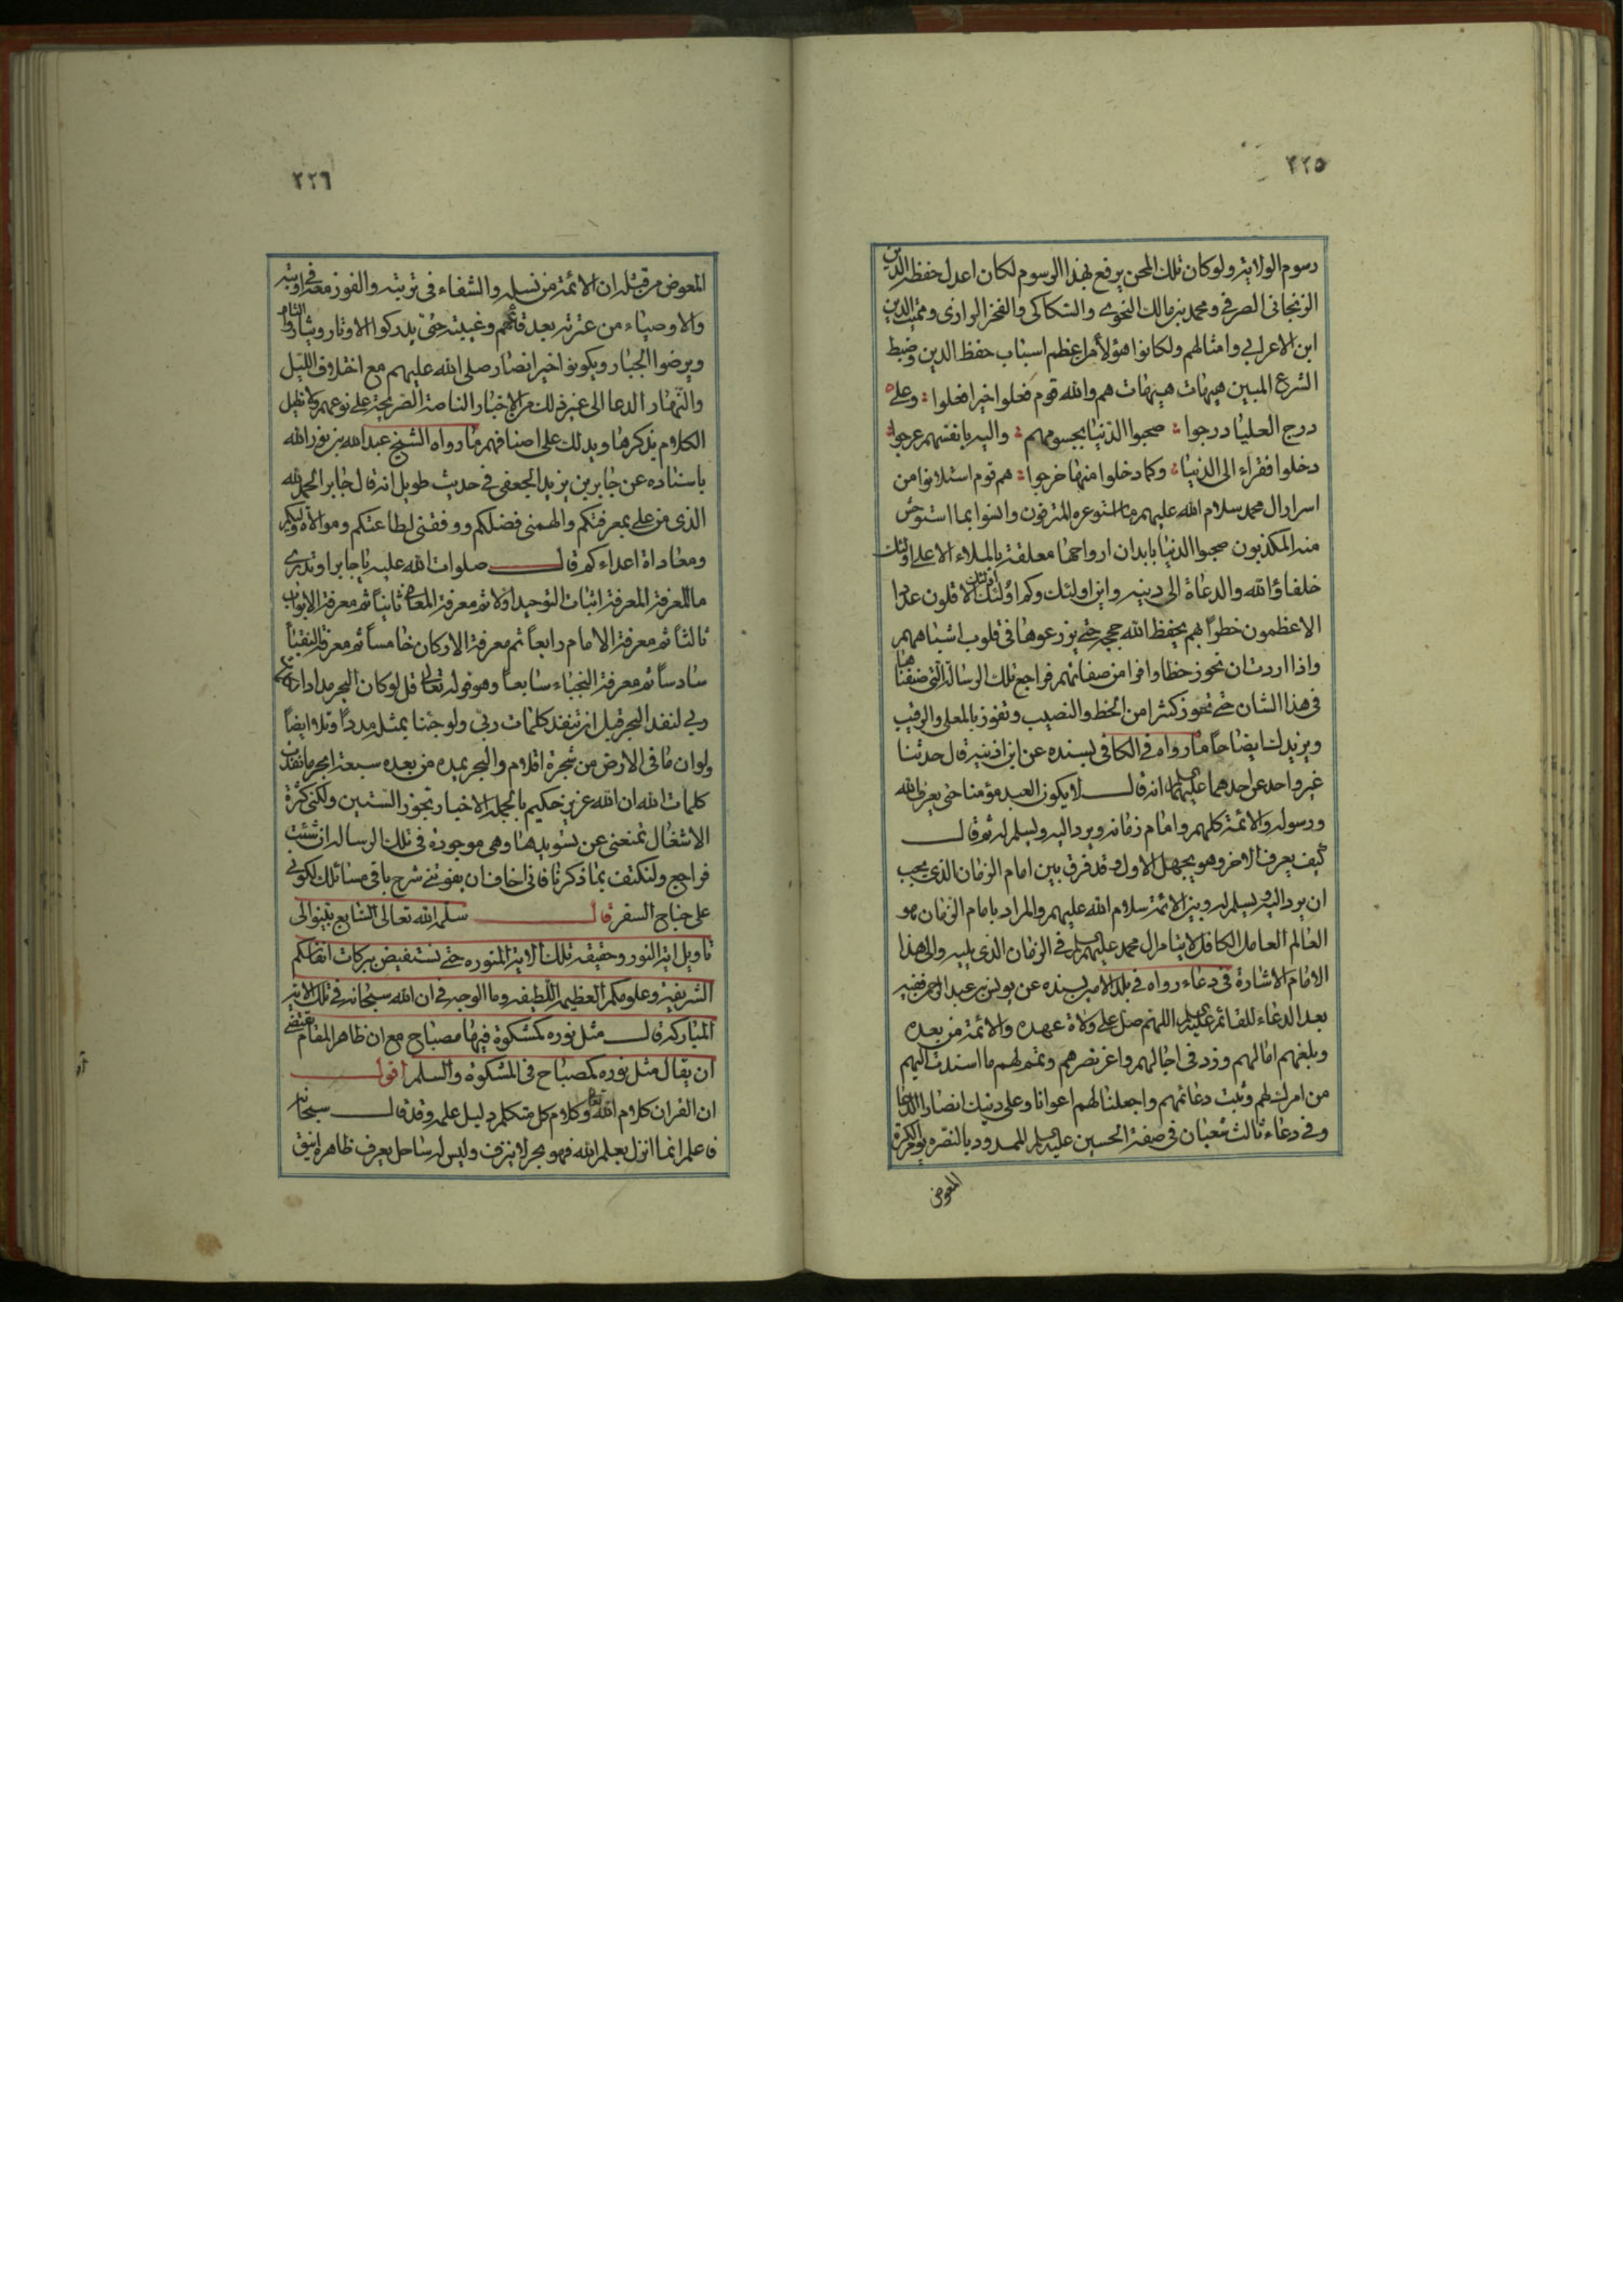 ٢٢٥
رسوم الولاية ولو كان تلك المحن يرفع بهذا الرسوم لكان اعدل حفظة الدين
الزنجانى الصرفى ومحمد بن مالك النحوى والسكاكى والفخر الرازى ومميت الدين
ابن الاعرابى وامثالهم ولكانوا هؤلاء من اعظم اسباب حفظ الدين وضبط
الشرع المبين هيهات هيهات هم والله قوم فعلوا خيرا فعلوا وعلى
درج العليا درجوا صحبوا الدنيا بجسومهم واليه بانفسهم عرجوا
دخلوا فقراء الى الدنيا وكما دخلوا منها خرجوا هم قوم استلانوا من
اسرار ال محمد سلام الله عليهم ما استوعره المترفون وانسوا بما استوحش
منه المكذبون صحبوا الدنيا بابدان ارواحها معلقة بالملاء الاعلى اولئك
خلفاؤ الله والدعاة الى دينه واين اولئك وكم اولئك اولئك الاقلون عددا
الاعظمون خطرا بهم يحفظ الله حججه حتى يزرعوها فى قلوب اشباههم
واذا اردت ان تحوز حظا وافرا من صفاتهم فراجع تلك الرسالة التى صنفناها
فى هذا الشان حتى تحوز كثيرا من الحظ والنصيب وتفوز بالمعلى والرقيب
ويزيدك ايضاحا ما رواه فى الكافى بسنده عن ابن اذينه قال حدثنا
غير واحد عن احدهما عليهما السلام انه قال لا يكون العبد مؤمنا حتى يعرف الله
ورسوله والائمة كلهم وامام زمانه ويرد اليه ويسلم له ثم قال
كيف يعرف الاخر وهو يجهل الاول وقد فرق بين امام الزمان الذى يجب
ان يرد اليه ويسلم له وبين الائمة سلام الله عليهم والمراد بامام الزمان هو
العالم العامل الكافل لايتام ال محمد عليهم السلام فى الزمان الذى يليه والى هذا
الامام الاشارة فى دعاء رواه فى بلد الامين بسنده عن يونس بن عبد الرحمن ففيه
بعد الدعاء للقائم عليه السلام اللهم صل على ولاة عهده والائمة من بعده
وبلغهم امالهم وزد فى اجالهم واعز نصرهم وتمم لهم ما اسندت اليهم
من امرك لهم وثبت دعائمهم واجعلنا لهم اعوانا وعلى دينك انصارا الدعا
وفى دعاء ثالث شعبان فى صفة الحسين عليه السلم الممدود بالنصره يوم الكرة
المعوض
٢٢٦
المعوض من قتله ان الائمة من نسله والشفاء فى تربته والفوز معه فى اوبته
والاوصياء من عترته بعد قائمهم وغيبته حتى يدركوا الاوتار ويثأروا الثار
ويرضوا الجبار ويكونوا خير انصار صلى الله عليهم مع اختلاف الليل
والنهار الدعا الى غير ذلك من الاخبار الناصة الصريحة على نوعهم ولا نطيل
الكلام بذكرها ويدلك على اصنافهم ما رواه الشيخ عبد الله بن نور الله
باسناده عن جابر بن يزيد الجعفى فى حديث طويل انه قال جابر الحمد لله
الذى من على بمعرفتكم والهمنى فضلكم ووفقنى لطاعتكم وموالاة وليكم
ومعاداة اعداءكم قال صلوات الله عليه يا جابر او تدرى
ما المعرفة المعرفة اثبات التوحيد اولا ثم معرفة المعانى ثانيا ثم معرفة الابواب
ثالثا ثم معرفة الامام رابعا ثم معرفة الاركان خامسا ثم معرفة النقباء
سادسا ثم معرفة النجباء سابعا وهو قوله تعالى قل لو كان البحر مدادا لكلمات
ربى لنفد البحر قبل ان تنفد كلمات ربى ولو جئنا بمثله مددا وتلا ايضا
ولو ان ما فى الارض من شجرة اقلام والبحر يمده من بعده سبعة ابحر ما نفدت
كلمات الله ان الله عزيز حكيم بالجملة الاخبار تجوز الستين ولكنى كثرة
الاشغال تمنعنى عن تسويدها وهى موجودة فى تلك الرسالة ان شئت
فراجع ولنكتف بما ذكرنا فانى اخاف ان يفوتنى شرح باقى مسائلك لكونى
على جناح السفر قال سلمه الله تعالى السابع بينوا لى
تاويل اية النور وحقيقة تلك الاية المنوره حتى نستفيض ببركات انفاسكم
الشريفة وعلومكم العظيمة اللطيفه وما الوجه فى ان الله سبحانه فى تلك الاية
المباركة قال مثل نوره كمشكوة فيها مصباح مع ان ظاهر المقام يقتضى
ان يقال مثل نوره كمصباح فى المشكوة والسلم اقول
ان القران كلام الله تعالى وكلام كل متكلم دليل علمه وقد قال سبحانه
فاعلم انما انزل بعلم الله فهو بحر لا ينزف وليس له ساحل يعرف ظاهره انيق